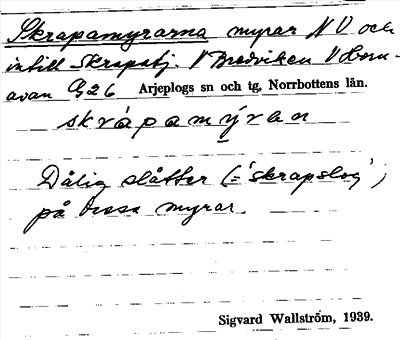 Skrapamyrarna myrar N V. och
intill Skrapabj. V Bredviken V Horn-
avan G26 Arjeplogs sn och tg, Norrbottens län.
skrápamỳran
Dålig slåtter (= 'skrapslog';
på dessa myrar.
Sigvard Wallström, 1939.